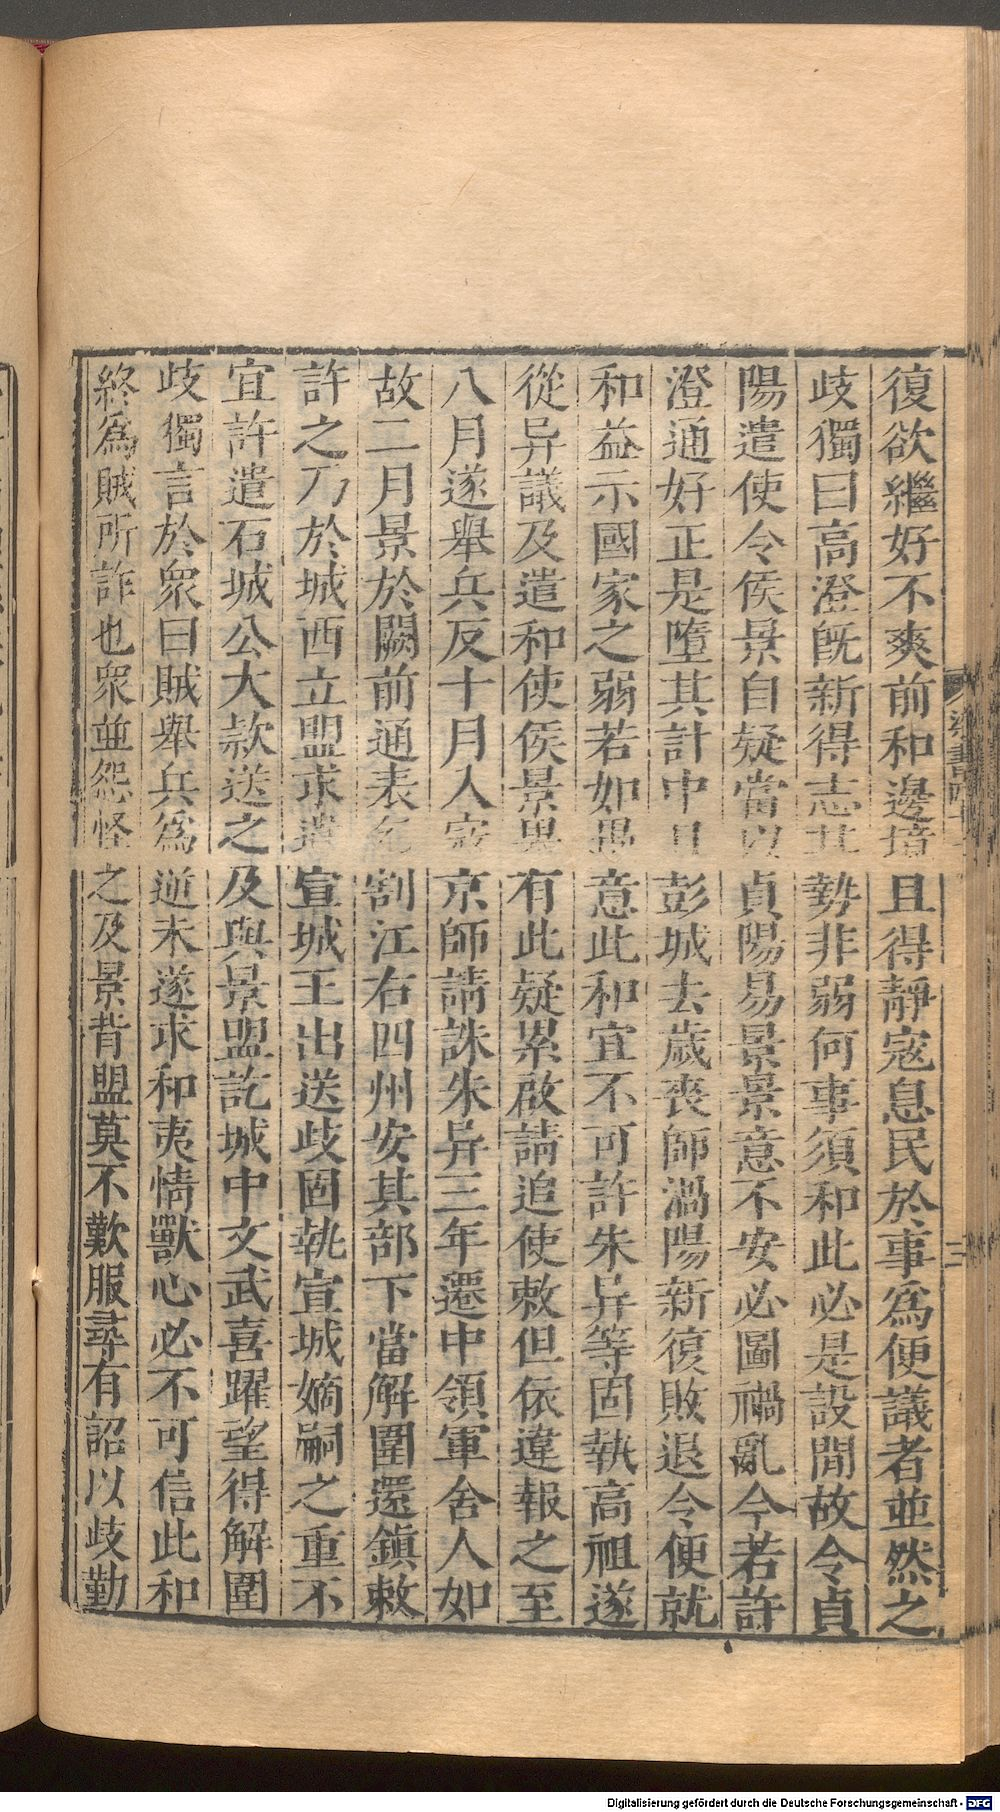 復欲繼好不爽前和邊境且得靜寇息民於事爲便議者並然之
歧獨曰高澄既新得志其勢非弱何事須和此必是設間故令貞
陽遣使令侯景自疑當以貞陽易景景意不安必圖禍亂今若許
澄通好正是墮其計中且彭城去歲喪師渦陽新復敗退令便就
和益示國家之弱若如愚意此和宜不可許朱异等固執高祖遂
從异議及遣和使侯景果有此疑累啟請追使敕但依違報之至
八月遂舉兵反十月入寇京師請誅朱异三年遷中領軍舍人如
故二月景於闕前通表乞割江右四州安其部下當解圍還鎮敕
許之乃於城西立盟求遣宣城王出送歧固執宣城嫡嗣之重不
宜許遣石城公大款送之及與景盟訖城中文武喜躍望得解圍
歧獨言於衆曰賊舉兵爲逆未遂求和夷情獸心必不可信此和
終爲賊所詐也衆並怨怪之及景背盟莫不歎服尋有詔以歧勤
梁書
Digitalisierung gefördert durch die Deutsche Forschungsgemeinschaft - DFG